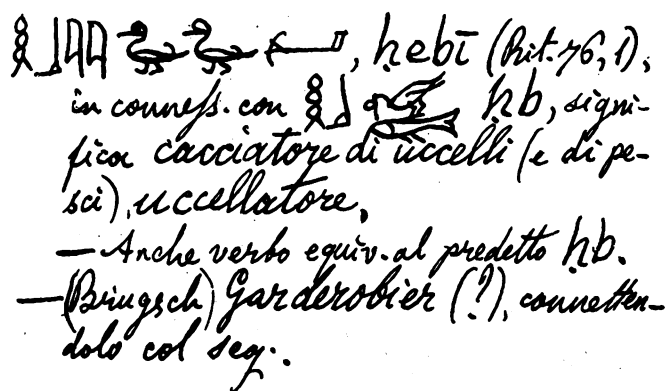 𓎛𓃀𓇋𓇋, ḥebī (Rit. 76, 1),
in conness. con 𓎛𓃀 ḥb, signi-
fica cacciatore di uccelli (e di pe-
sci), uccellatore,
— Anche verbo equiv. al predetto ḥb.
— (Brugsch) Garderobier (?), connetten-
dolo col seg.